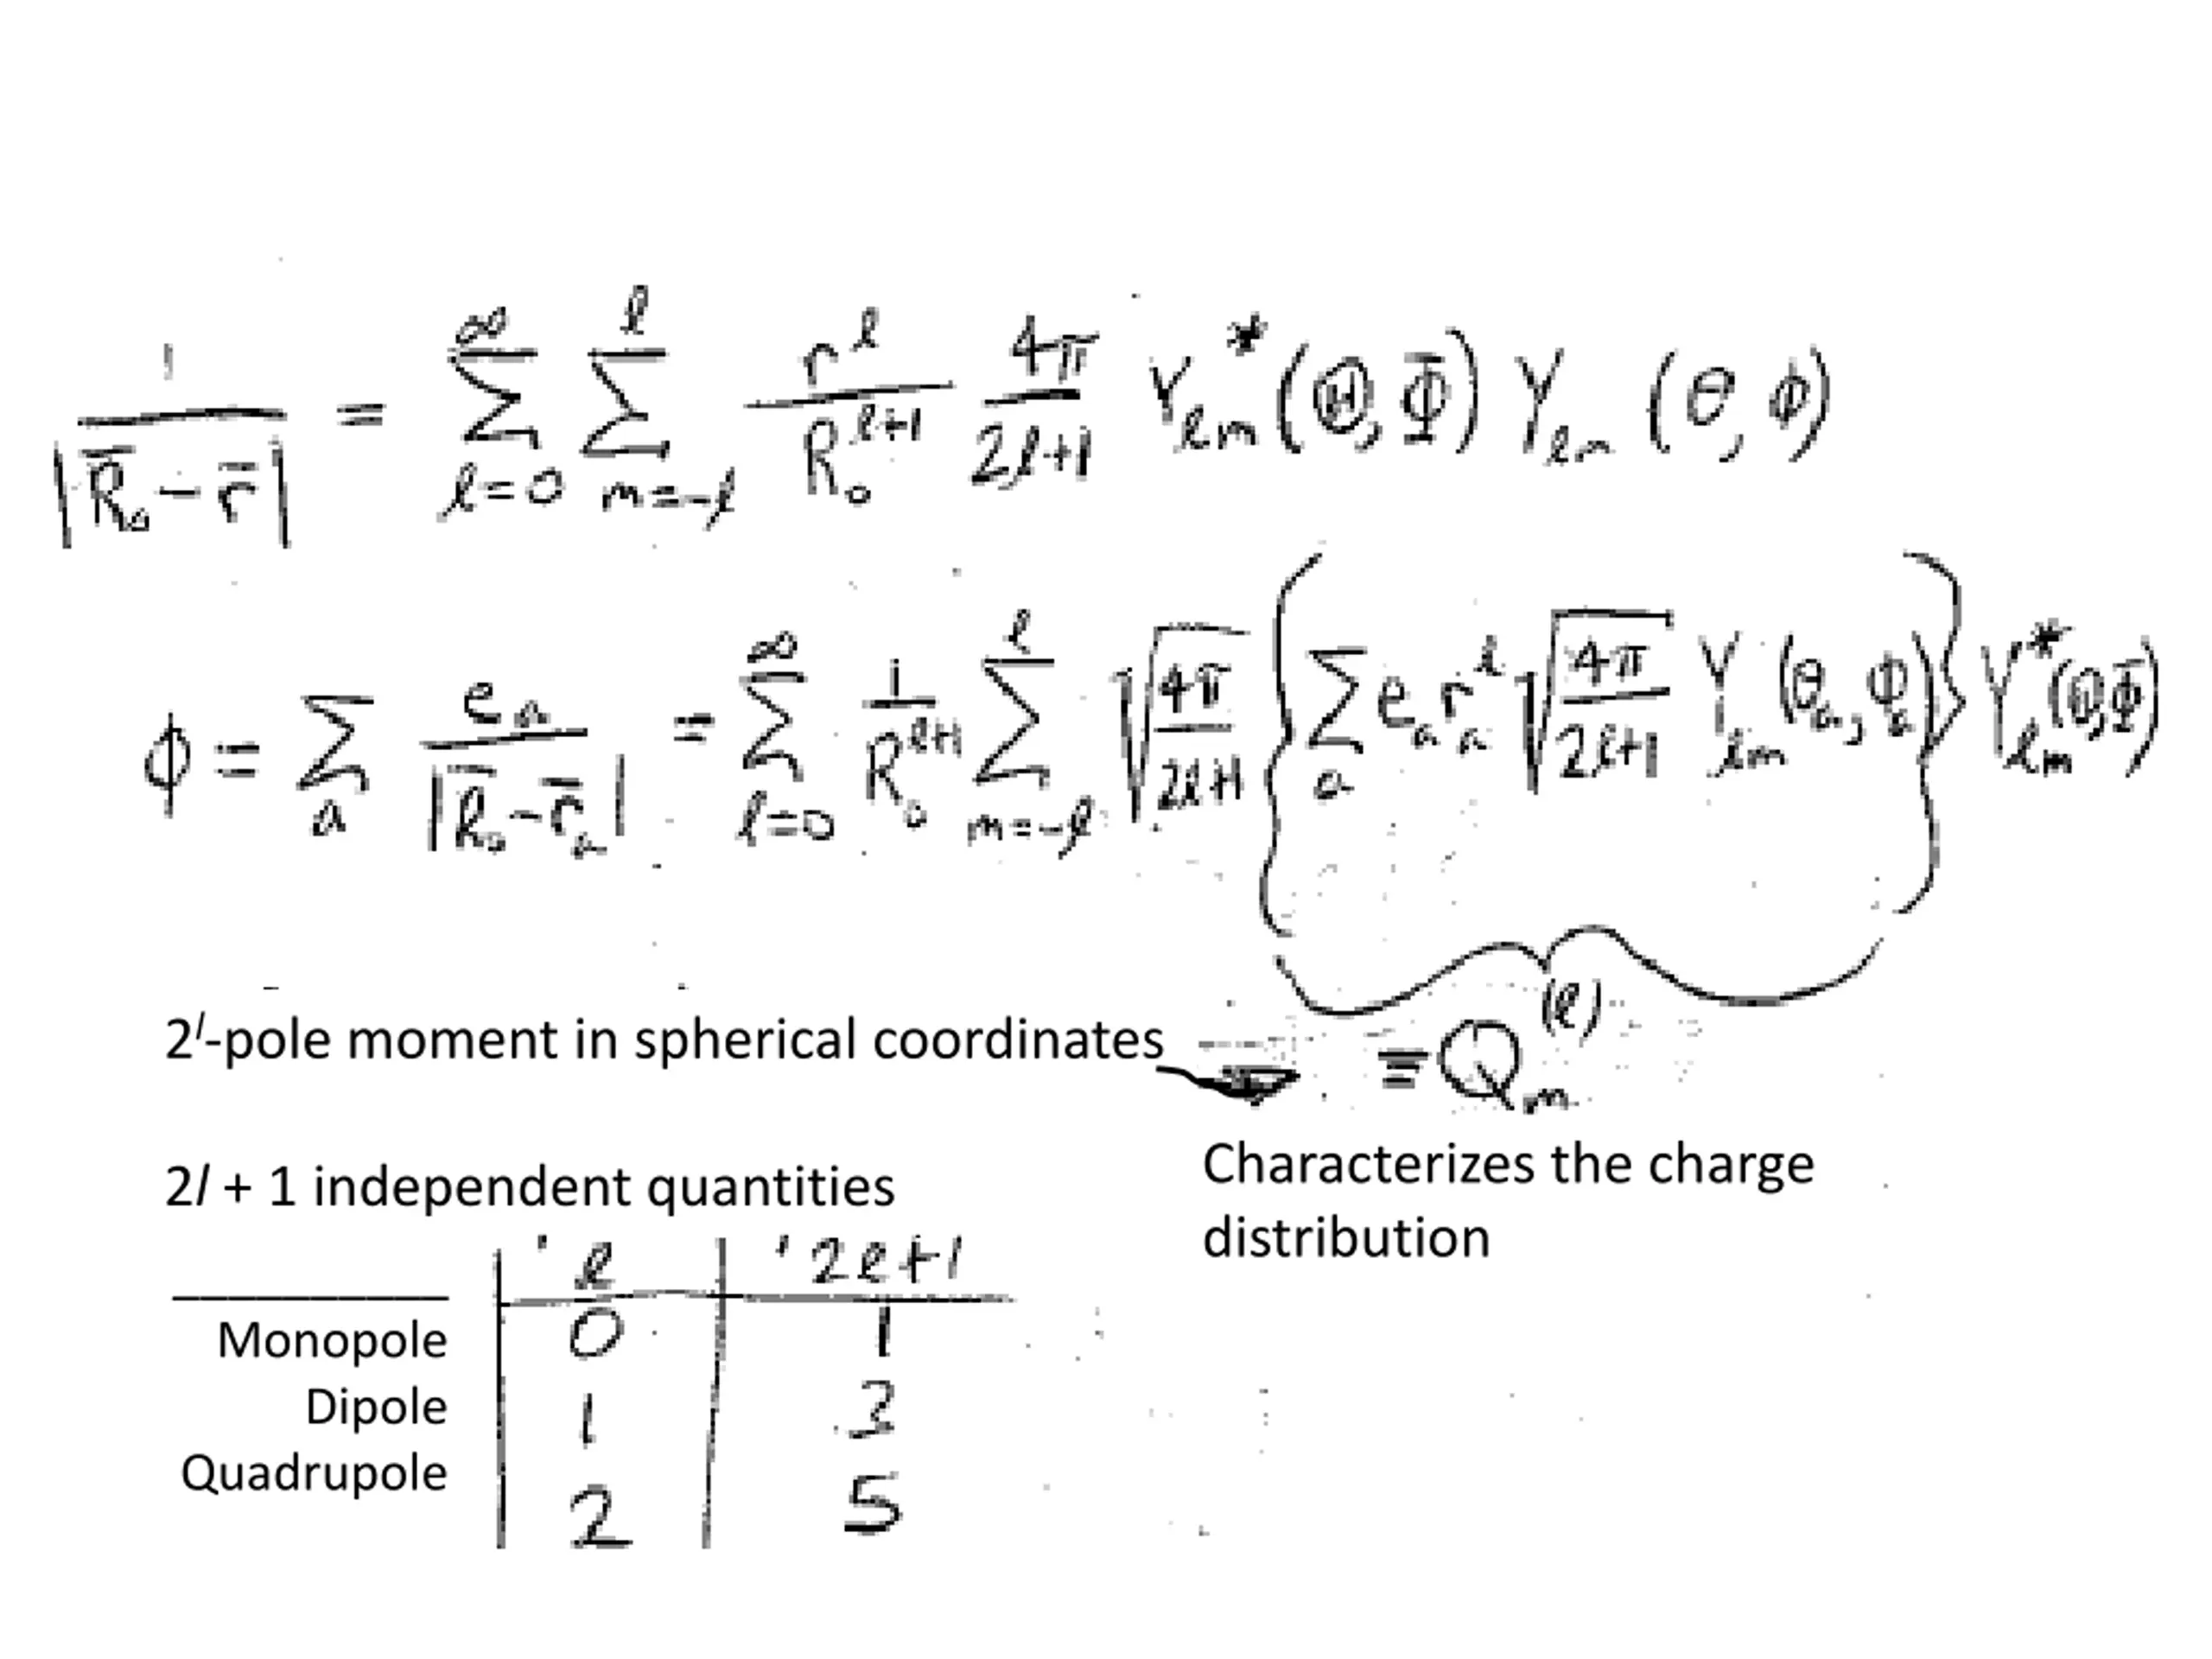 1/|R̄₀ − r̄| = ∑_{ℓ=0}^{∞} ∑_{m=−ℓ}^{ℓ} r^ℓ/R₀^{ℓ+1} 4π/(2ℓ+1) Y_{ℓm}^*(Θ, Φ) Y_{ℓm}(θ, ϕ)
ϕ = ∑_a e_a/|R̄₀ − r̄_a| = ∑_{ℓ=0}^{∞} 1/R₀^{ℓ+1} ∑_{m=−ℓ}^{ℓ} √(4π/(2ℓ+1)) {∑_a e_a r_a^ℓ √(4π/(2ℓ+1)) Y_{ℓm}(θ_a, ϕ_a)} Y_{ℓm}^*(Θ, Φ)
2^l-pole moment in spherical coordinates ≡ Q_m^{(ℓ)}
Characterizes the charge
distribution
2l + 1 independent quantities
ℓ 2ℓ+1
Monopole 0 1
Dipole 1 3
Quadrupole 2 5